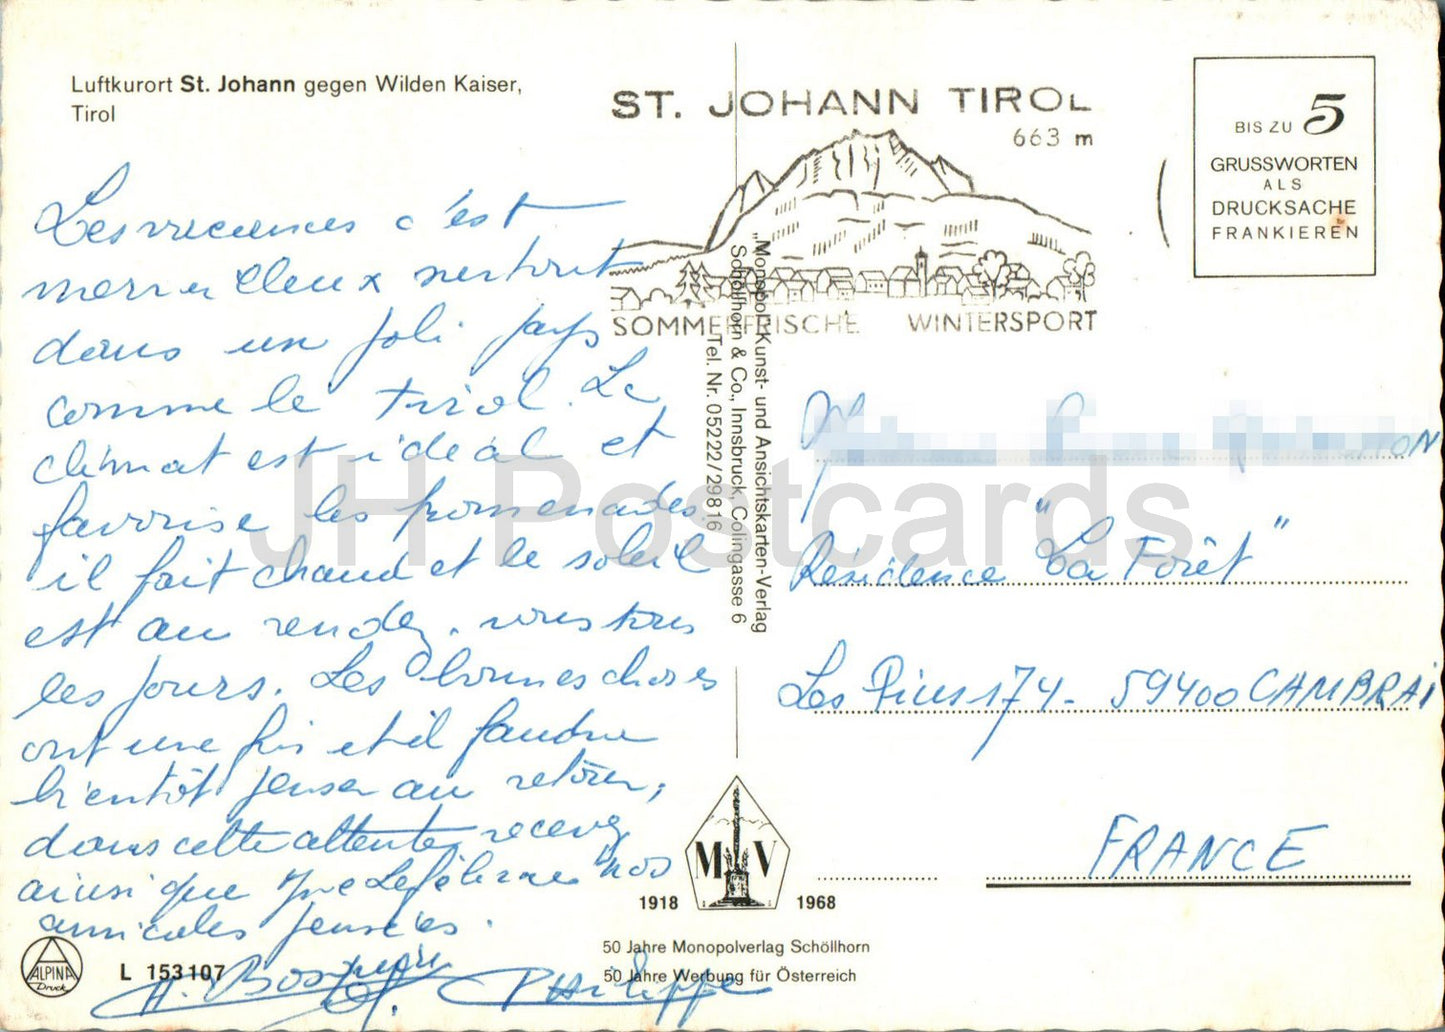 Luftkurort St. Johann gegen Wilden Kaiser,
Tirol
ST. JOHANN TIROL
663 m
SOMMERFRISCHE WINTERSPORT
BIS ZU 5
GRUSSWORTEN
ALS
DRUCKSACHE
FRANKIEREN
Les vacances c'est
merveilleux surtout
dans un joli pays
comme le Tirol. Le
climat est idéal et
favorise les promenades.
il fait chaud et le soleil
est au rendez-vous tous
les jours. Les bonnes choses
ont une fin et il faudra
bientôt penser au retour,
dans cette attente recevez
ainsi que nos
amicales pensées.
Philippe
"Monopol" Kunst- und Ansichtskarten-Verlag
Schöllhorn & Co., Innsbruck, Colingasse 6
Tel. Nr. 05222/29816
Résidence "La Forêt"
Les Pins 174 - 59400 CAMBRAI
FRANCE
M V
1918 1968
50 Jahre Monopolverlag Schöllhorn
50 Jahre Werbung für Österreich
ALPINA
Druck
L 153107
JH Postcards